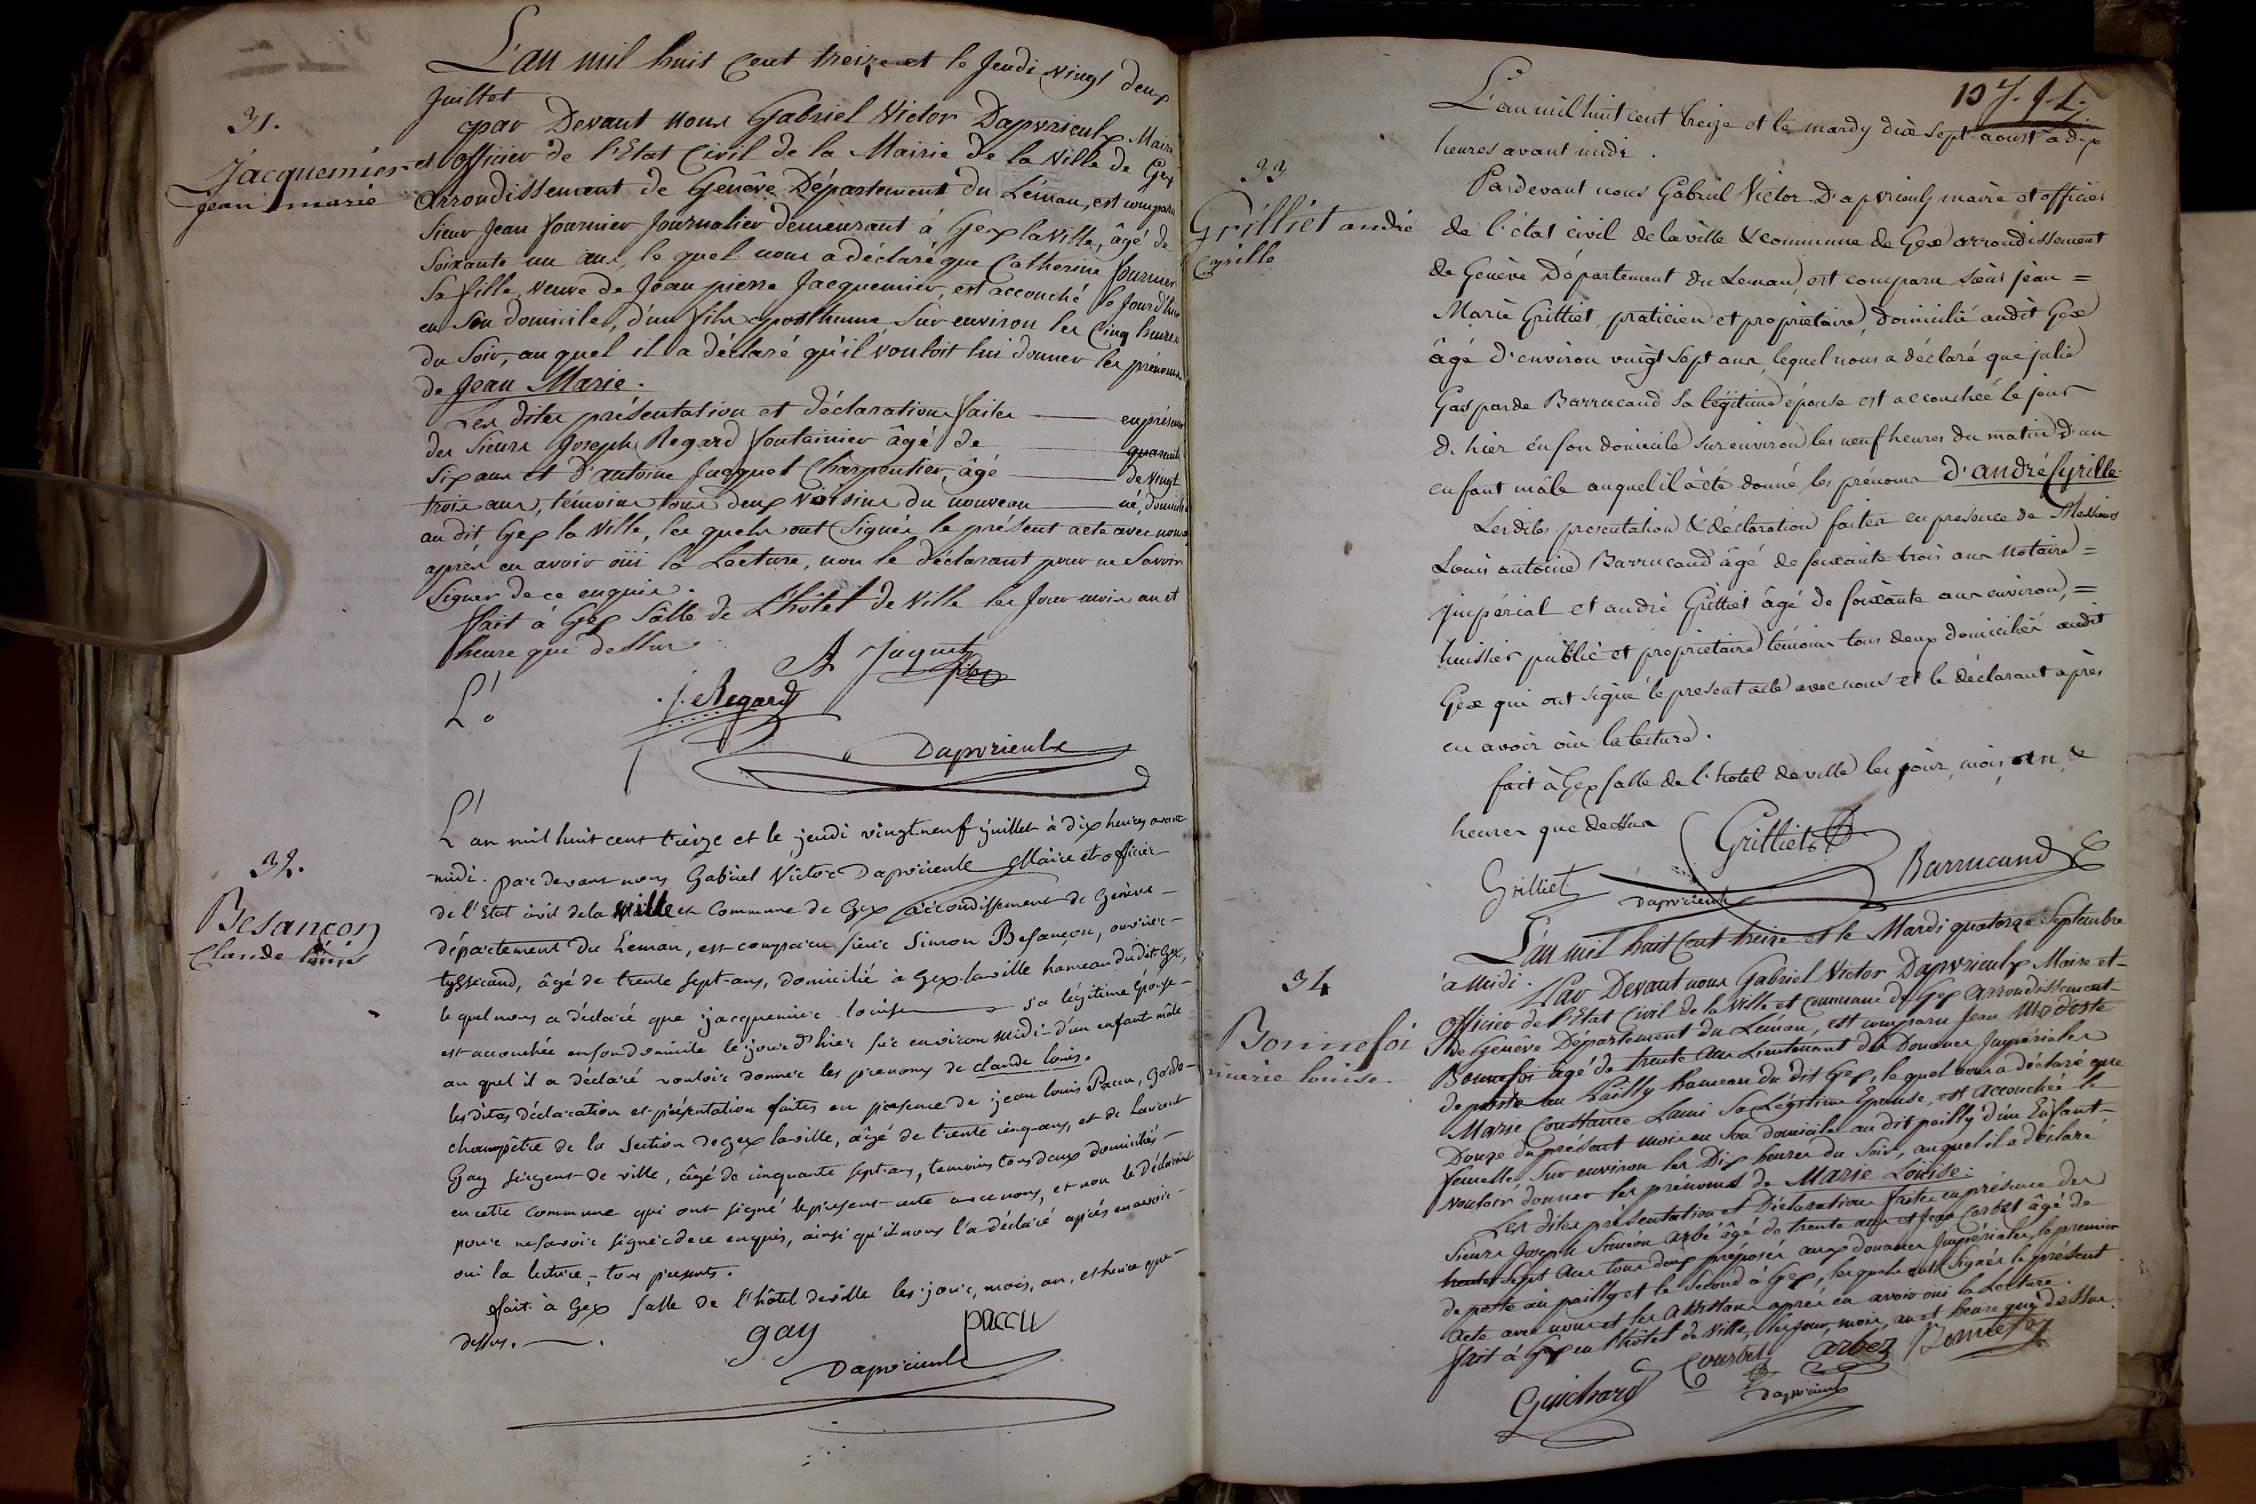 31.
Jacquemier
Jean marie
L'an mil huit Cent treize et le Jeudi vingt deux
Juillet
par Devant nous Gabriel Victor Dapvrieulx Maire
et officier de l'Etat Civil de la Mairie de la Ville de Gex
arrondissement de Genêve Département du Léman, est comparu
Sieur Jean fournier Journalier demeurant à Gex la Ville, âgé de
Soixante un ans, le quel nous a déclaré que Catherine fournier
Sa fille, veuve de Jean pierre Jacquemier, est accouché le Jourd'hui
en Son domicile, d'un fils posthume, Sur environ les Cinq heures
du Soir, au quel il a déclaré qu'il vouloit lui donner les prénoms
de Jean Marie.
Les dites présentation et déclaration faites en présence
des Sieurs Joseph Regard fontainier âgé de quarante
Six ans et d'antoine Jacquet Charpentier, âgé de vingt
trois ans, témoins tous deux voisins du nouveau né, domiciliés
au dit Gex la Ville, les quels ont Signés le présent acte avec nous
après en avoir oüi la Lecture, non le déclarant pour ne Savoir
Signer de ce enquis.
fait à Gex Sâlle de L'hôtel de Ville les Jour mois an et
heure que dessus
A Jaquet
J. Regard
Dapvrieulx
32.
Besançon
Claude louis
L'an mil huit cent treize et le jeudi vingt neuf juillet à dix heures avant
midi. par devant nous Gabriel Victor Dapvrieulx Maire et officier
de l'Etat civil de la Ville et Commune de Gex arrondissement de Genève
département du Léman, est comparu sieur Simon Besançon, ouvrier
tysserand, âgé de trente sept ans, domicilié à Gex-la-ville hameau du dit Gex,
le quel nous a déclaré que jacquemier louise sa légitime épouse
est accouchée en son domicile le jour d'hier sur environ midi d'un enfant mâle
au quel il a déclaré vouloir donner les prenoms de claude louis.
les dites déclaration et présentation faites en présence de jean louis Paccu, garde
champêtre de la section de gex la ville, âgé de trente cinq ans, et de Laurent
Gay sergent de ville, âgé de cinquante sept ans, temoins tous deux domiciliés
en cette commune qui ont signé le présent acte avec nous, et non le déclarant
pour ne savoir signer de ce enquis, ainsi qu'il nous l'a déclaré après en avoir
oui la lecture, tous présents.
fait à Gex salle de l'hôtel de ville les jour, mois, an, et heure que
dessus.
gay
paccu
Dapvrieulx
107.
33
Grilliet andré
Cyrille
L'an mil huit cent treize et le mardy dix sept aoust à dix
heures avant midi.
Pardevant nous Gabriel Victor D'apvrieulx maire et officier
de l'état civil de la ville & commune de Gex arrondissement
de Genève Département du Leman, est comparu Sieur jean =
Marie Grilliet, praticien et propriétaire, domicilié audit Gex
âgé d'environ vingt sept ans, lequel nous a déclaré que julie
Gasparde Barrucand sa légitime épouse est accouchée le jour
d'hier en son domicile sur environ les neuf heures du matin d'un
enfant mâle auquel il a été donné les prénoms d'andré Cyrille.
Lesdites presentation & déclaration faites en presence de Messieurs
Louis antoine Barrucand âgé de soixante trois ans Notaire =
impérial et andré Grilliet âgé de soixante ans environ, =
huissier public et propriétaire témoins tous deux domiciliés audit
Gex qui ont signé le present acte avec nous et le déclarant après
en avoir oüi la lecture.
fait à Gex salle de l'hotel de ville les jour, mois, an, &
heures que dessus
Grilliet
Grilliet
Barrucand
Dapvrieulx
34
Bonnefoi
marie louise.
L'an mil huit Cent treize et le Mardi quatorze Septembre
à Midi.
Par Devant nous Gabriel Victor Dapvrieulx Maire et
officier de l'Etat Civil de la Ville et Commune de Gex arrondissement
de Genêve Département du Léman, est comparu Jean Modeste
Bonnefoi âgé de trente ans Lieutenant des Douanes Impériales
de poste au Pailly hameau du dit Gex, le quel nous a déclaré que
Marie Constance Lami Sa Légitime Epouse, est accouchée le
Douze du présent mois en Son domicile au dit pailly d'un Enfant
femelle, Sur environ les Dix heures du Soir, au quel il a déclaré
vouloir donner les prénoms de Marie Louise.
Les dites présentation et Déclaration faites en présence des
Sieurs Joseph Siméon arbé âgé de trente ans et Jean Corbet âgé de
trente Sept ans tous deux préposés aux douanes Impériales, le premier
de poste au pailly et le Second à Gex, lesquels ont Signés le présent
acte avec nous et les assistans après en avoir oui la Lecture.
fait à Gex en l'hôtel de Ville, les Jour, mois, an et heure que dessus.
Guichard
Courbet
arbez
Bonnefoi
Dapvrieulx